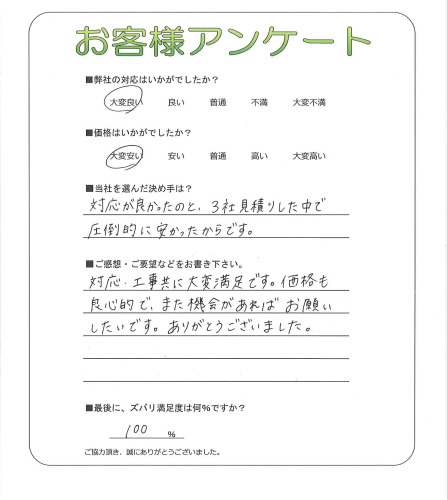 お客様アンケート
■弊社の対応はいかがでしたか?
大変良い 良い 普通 不満 大変不満
■価格はいかがでしたか?
大変安い 安い 普通 高い 大変高い
■当社を選んだ決め手は?
対応が良かったのと、3社見積りした中で
圧倒的に安かったからです。
■ご感想・ご要望などをお書き下さい。
対応・工事共に大変満足です。価格も
良心的で、また機会があればお願い
したいです。ありがとうございました。
■最後に、ズバリ満足度は何%ですか?
100 %
ご協力頂き、誠にありがとうございました。